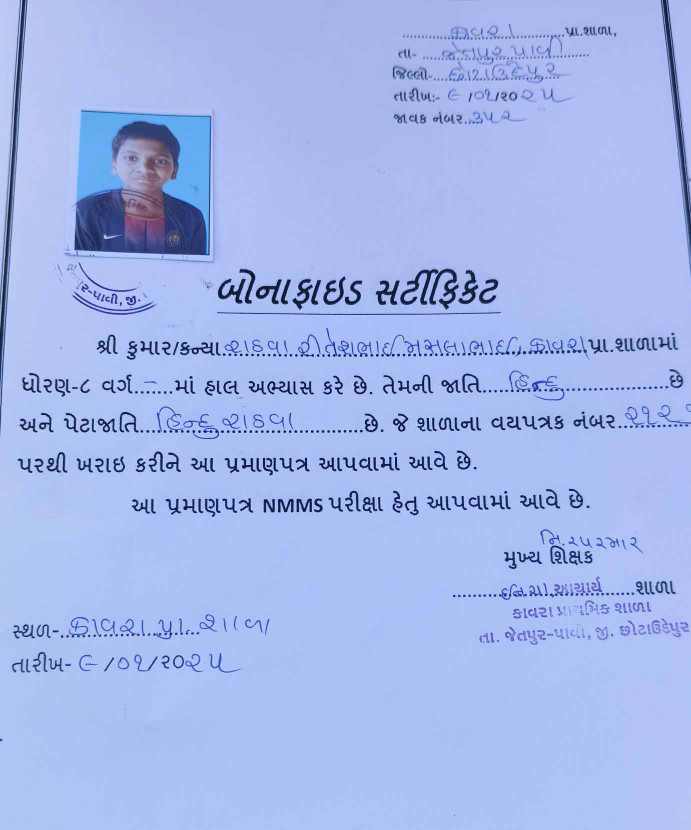 કાવરા પ્રા.શાળા,
તા- જેતપુર પાવી
જિલ્લો- છોટાઉદેપુર
તારીખ:- ૯/૦૧/૨૦૨૫
જાવક નંબર..૩૫૨
ર-પાવી, જી.
બોનાફાઇડ સર્ટીફિકેટ
શ્રી કુમાર/કન્યા રાઠવા રીતેશભાઈ મસલાભાઈ, કાવરા પ્રા.શાળામાં
ધોરણ-૮ વર્ગ....-....માં હાલ અભ્યાસ કરે છે. તેમની જાતિ.....હિન્દુ..............છે
અને પેટાજાતિ...હિન્દુ રાઠવા..............છે. જે શાળાના વયપત્રક નંબર..
પરથી ખરાઇ કરીને આ પ્રમાણપત્ર આપવામાં આવે છે.
આ પ્રમાણપત્ર NMMS પરીક્ષા હેતુ આપવામાં આવે છે.
મુખ્ય શિક્ષક
આચાર્ય......શાળા
કાવરા પ્રાથમિક શાળા
તા. જેતપુર-પાવી, જી. છોટાઉદેપુર
સ્થળ-..કાવરા પ્રા. શાળા
તારીખ- ૯/૦૧/૨૦૨૫